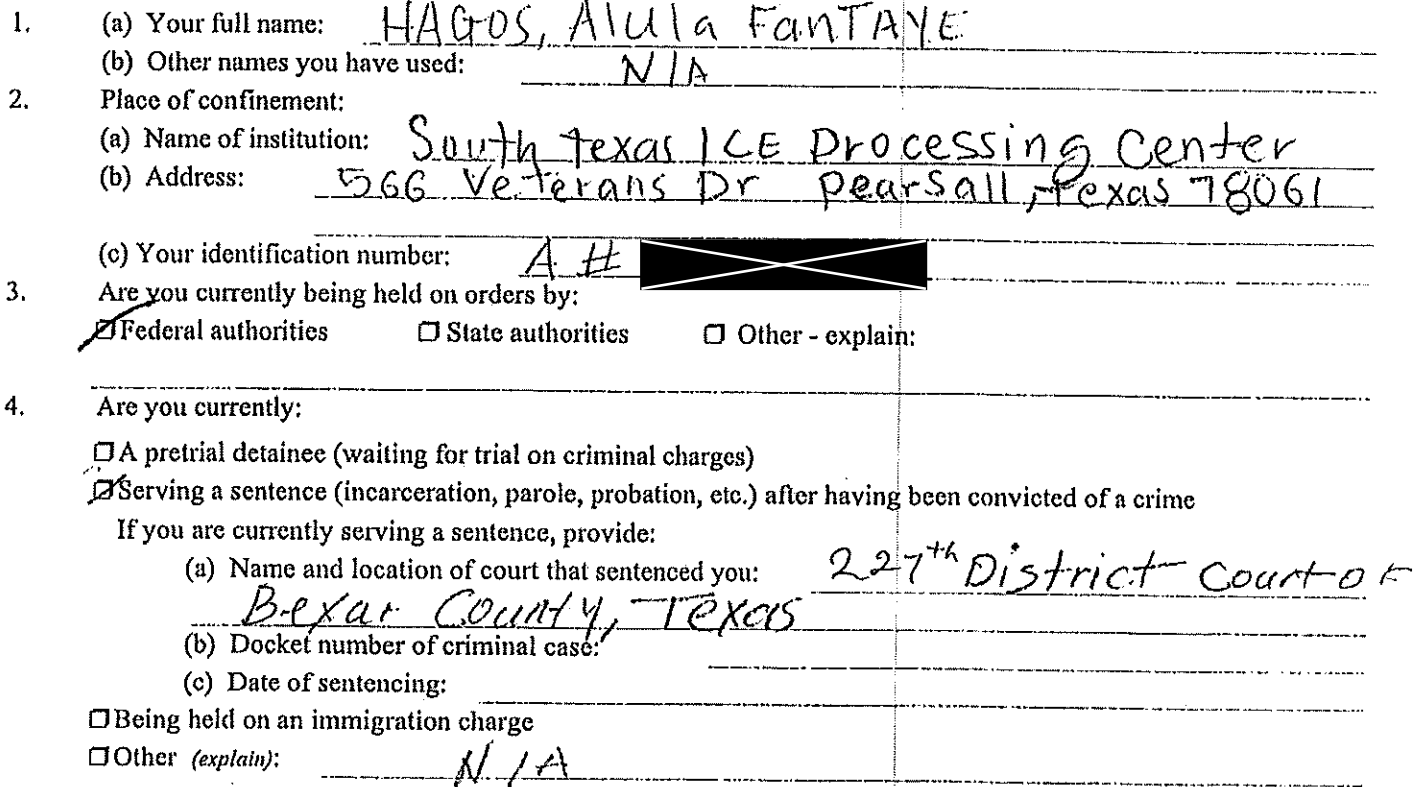 1. (a) Your full name: HAGOS, Alula FanTAYE
(b) Other names you have used: N/A
2. Place of confinement:
(a) Name of institution: South texas ICE Processing Center
(b) Address: 566 Veterans Dr pearsall, Texas 78061
(c) Your identification number: A #
3. Are you currently being held on orders by:
☑Federal authorities ☐ State authorities ☐ Other - explain:
4. Are you currently:
☐A pretrial detainee (waiting for trial on criminal charges)
☑Serving a sentence (incarceration, parole, probation, etc.) after having been convicted of a crime
If you are currently serving a sentence, provide:
(a) Name and location of court that sentenced you: 227th District Court OF
Bexar County, Texas
(b) Docket number of criminal case:
(c) Date of sentencing:
☐Being held on an immigration charge
☐Other (explain): N/A